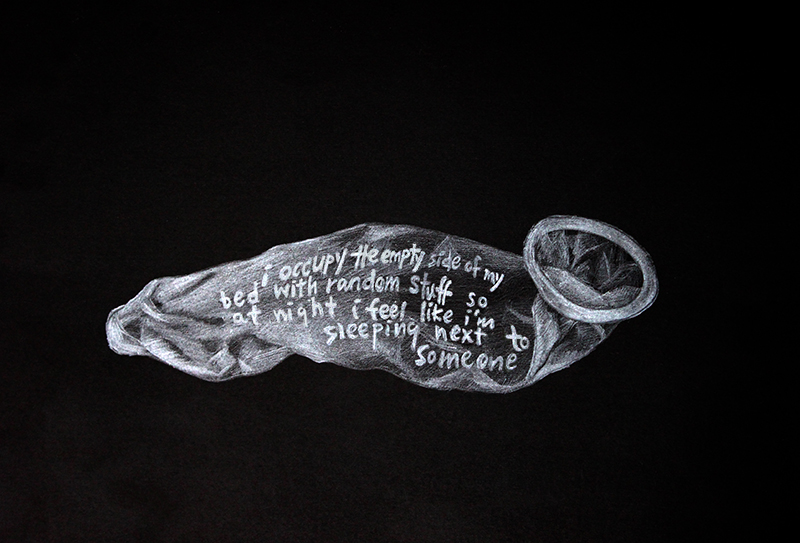 i occupy the empty side of my
bed with random stuff so
at night i feel like i'm
sleeping next to
someone